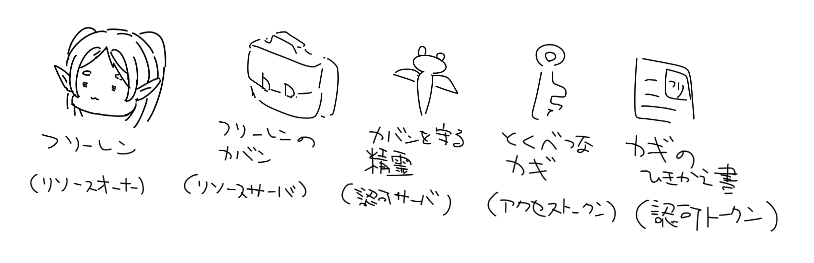 フリーレン
(リソースオーナー)
フリーレンの
カバン
(リソースサーバ)
カバンを守る
精霊
(認可サーバ)
とくべつな
カギ
(アクセストークン)
フリ
カギの
ひきかえ書
(認可トークン)